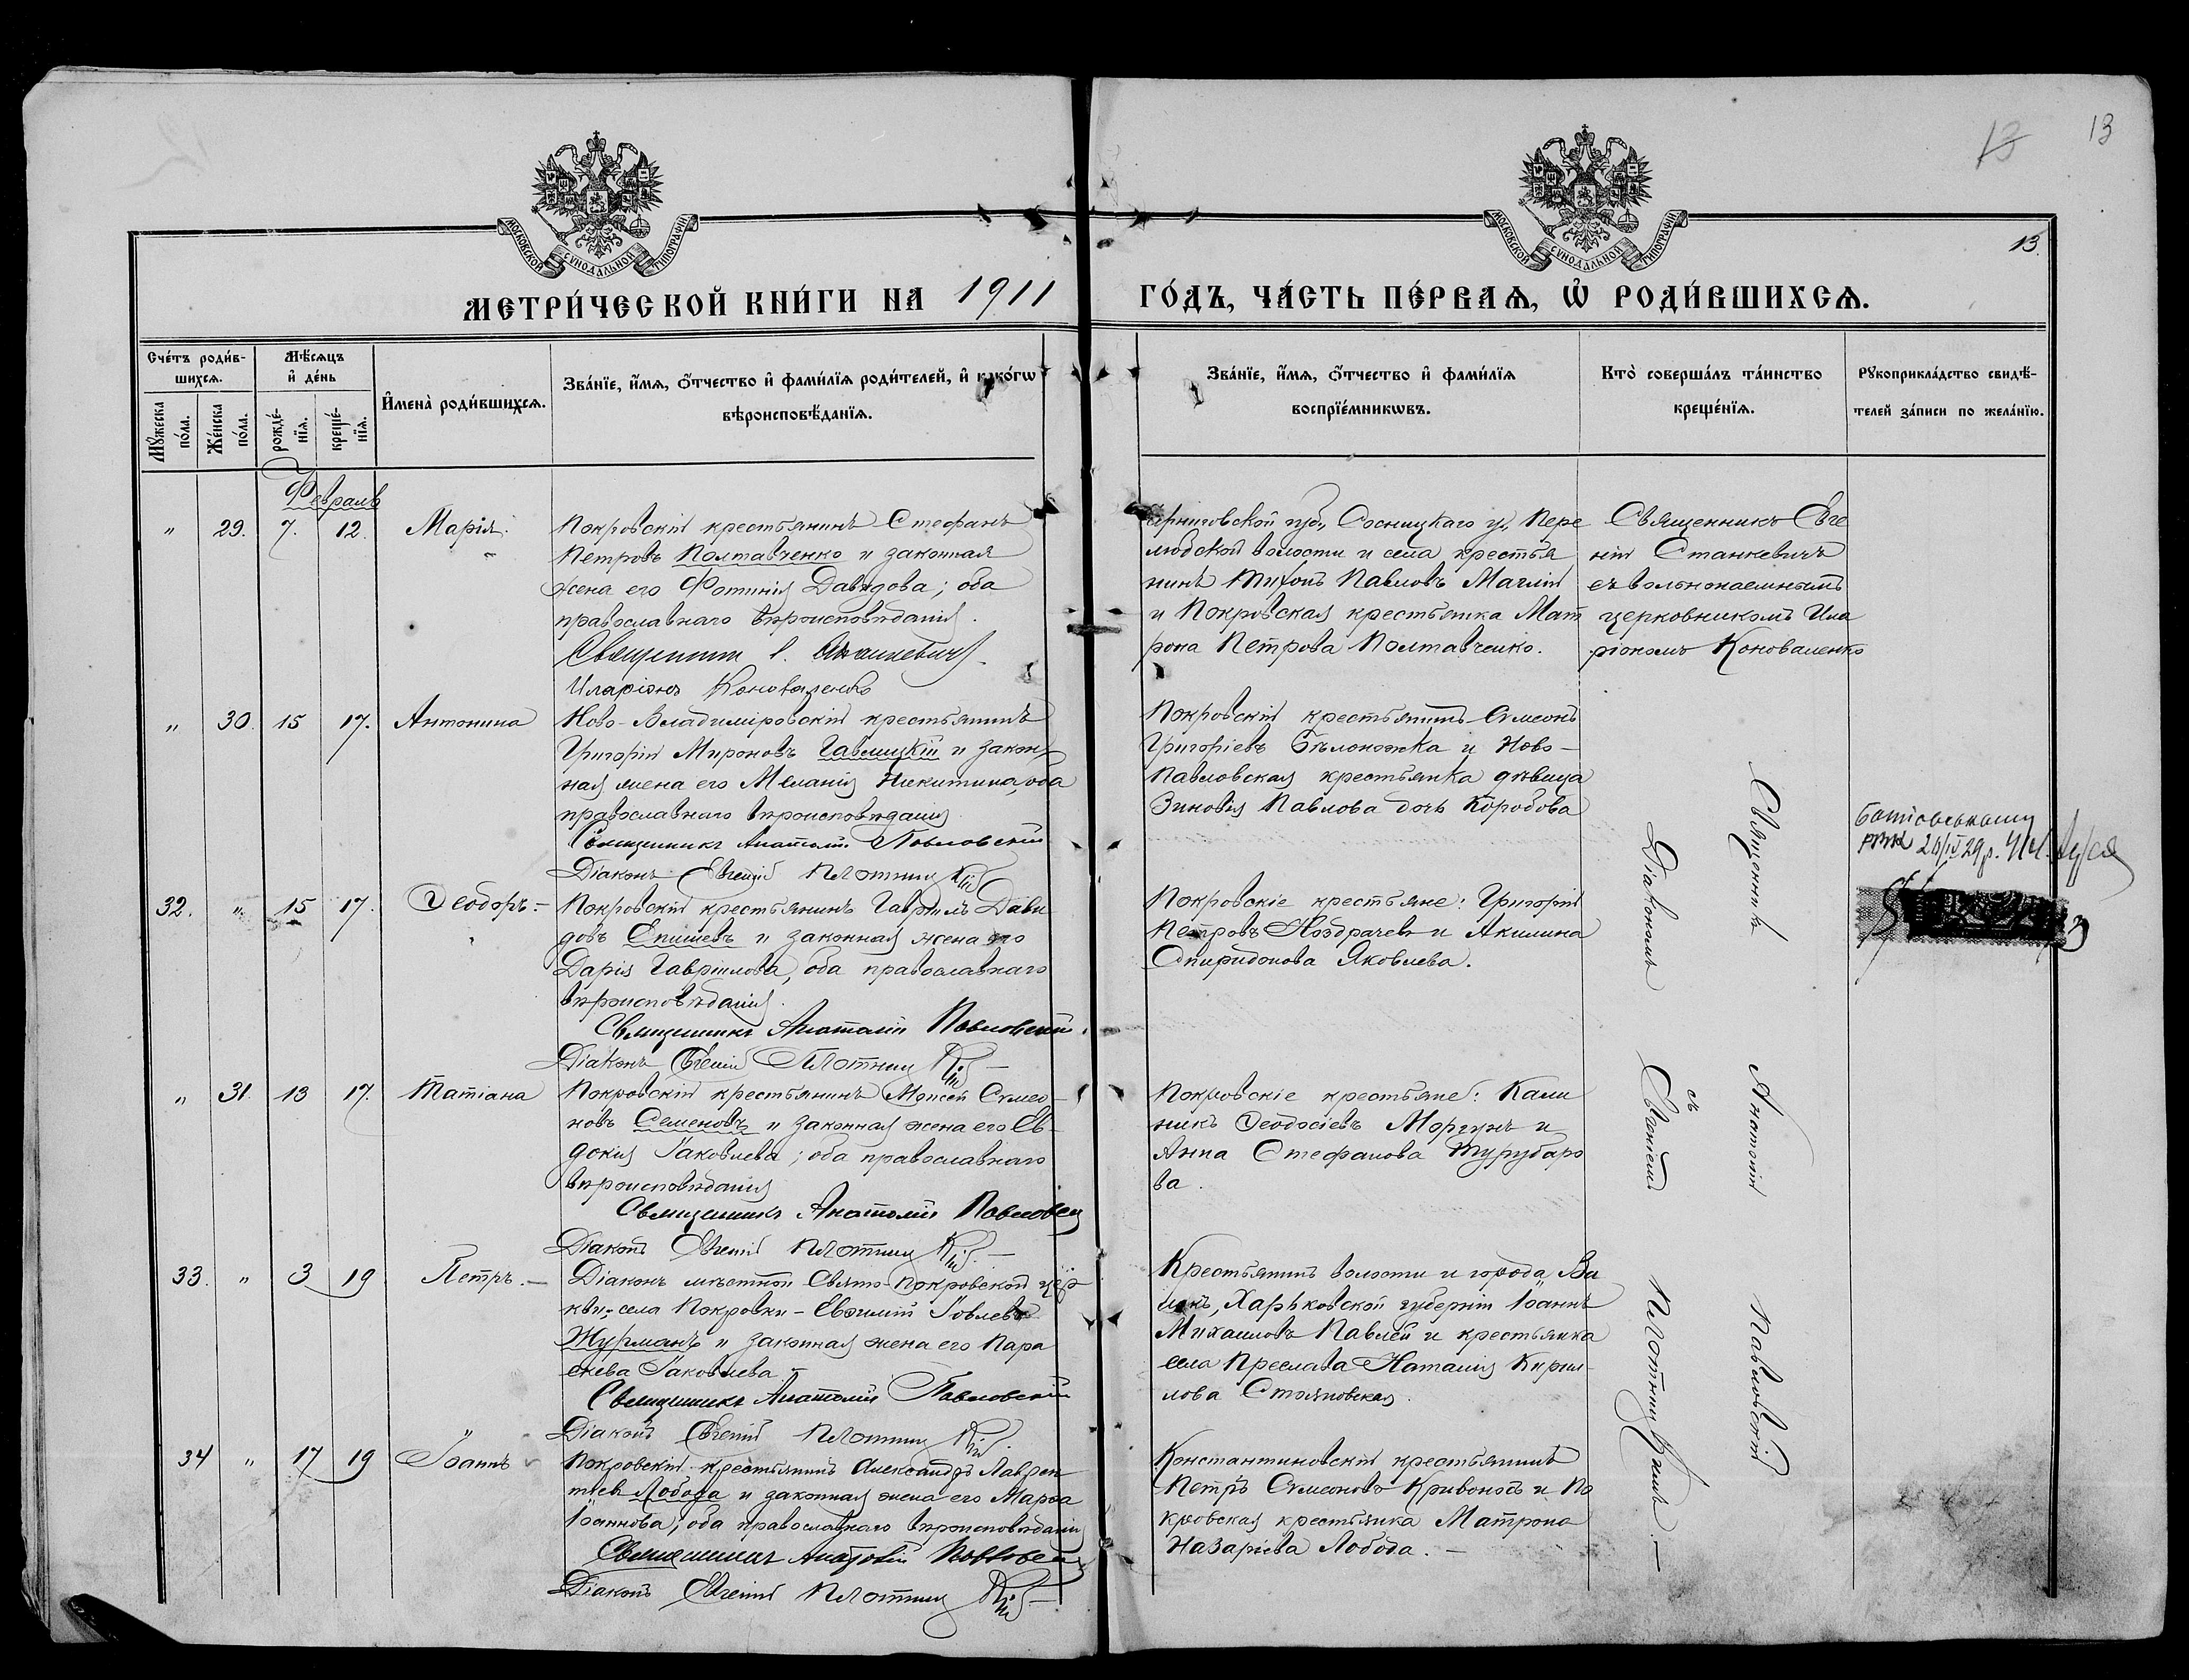 13
13
13.
МОСКОВСКОЙ СѴНОДАЛЬНОЙ ТИПОГРАФІИ
МОСКОВСКОЙ СѴНОДАЛЬНОЙ ТИПОГРАФІИ
МЕТРИ́ЧЕСКОЙ КНИ́ГИ НА 1911 ГО́ДЪ, ЧА́СТЬ ПЕ́РВАѦ, Ѡ҆ РОДИ́ВШИХСѦ.
Сче́тъ роди́в-
шихсѧ.
Мꙋ́жеска по́ла.
Же́нска по́ла.
Мѣ́сѧцъ
и҆ де́нь
рожде́-
нїѧ.
креще́-
нїѧ.
И҆мена̀ роди́вшихсѧ.
Зва́нїе, и҆́мѧ, ѻ҆́тчество и҆ фами́лїѧ роди́телей, и҆ како́гѡ
вѣроисповѣ́данїѧ.
Зва́нїе, и҆́мѧ, ѻ҆́тчество и҆ фами́лїѧ
воспрїе́мникѡвъ.
Кто̀ соверша́лъ та́инство
креще́нїѧ.
Рꙋкоприкла́дство свидѣ́-
телей за́писи по жела́нїю.
Февраль
„ 29. 7. 12. Марія.
Покровскій крестьянинъ Стефанъ
Петровъ Полтавченко и законная
жена его Фотинія Давидова; оба
православнаго вѣроисповѣданія.
Священникъ Е. Станкевичъ
Иларіонъ Коноваленко
Черниговской губ., Сосницкаго у., Пере
любской волости и села крестья
нинъ Тихонъ Павловъ Маглій
и Покровская крестьянка Мат
рона Петрова Полтавченко.
Священникъ Евге
ній Станкевичъ
съ вольнонаемнымъ
церковникомъ Ила
ріономъ Коноваленко
„ 30. 15 17. Антонина
Ново-Владиміровскій крестьянинъ
Григорій Мироновъ Гавлицкій и закон
ная жена его Меланія Никитина, оба
православнаго вѣроисповѣданія
Священникъ Анатолій Павловскій
Діаконъ Евгеній Плотниц Кій
Покровскій крестьянинъ Сѵмеонъ
Григоріевъ Бѣлоножка и Ново-
Павловская крестьянка дѣвица
Зиновія Павлова дочь Коробова
32. „ 15 17. Ѳеодоръ.-
Покровскій крестьянинъ Гавріилъ Дави
довъ Епишевъ и законная жена его
Дарія Гавріилова, оба православнаго
вѣроисповѣданія.
Священникъ Анатолій Павловскій.
Діаконъ Евгеній Плотниц Кій-
Покровскіе крестьяне: Григорій
Петровъ Ноздрачевъ и Акилина
Спиридонова Яковлева.
26/IV 29р.
„ 31. 13 17. Татіана
Покровскій крестьянинъ Моисей Сѵмео-
новъ Семеновъ и законная жена его Ев-
докія Іаковлева; оба православнаго
вѣроисповѣданія
Священникъ Анатолій Павловскій
Діаконъ Евгеній Плотниц Кій.-
Покровскіе крестьяне: Кали
никъ Ѳеодосіевъ Моргунъ и
Анна Стефанова Турубаро
ва.
33. „ 3 19 Петръ.-
Діаконъ мѣстной Свято-Покровской цер
кви, села Покровки-Евѳимій Іовлевъ
Журманъ и законная жена его Пара
скева Іаковлева.-
Священникъ Анатолій Павловскій
Діаконъ Евгеній Плотниц Кій.
Крестьянинъ волости и города Ва
локъ, Харьковской губерніи Іоаннъ
Михаиловъ Павлей и крестьянка
села Преслава Наталія Кирил-
лова Стояновская.
34 „ 17 19 Іоаннъ
Покровскій крестьянинъ Александръ Лаврен
тіевъ Лобода и законная жена его Марѳа
Іоаннова, оба православнаго вѣроисповѣданія
Священникъ Анатолій Павловскій
Діаконъ Евгеній Плотниц Кій-
Константиновскій крестьянинъ
Петръ Сѵмеоновъ Кривоносъ и По
кровская крестьянка Матрона
Назаріева Лобода.-
Священникъ Анатолій Павловскій
съ
Діакономъ Евгеніемъ Плотницкимъ.-